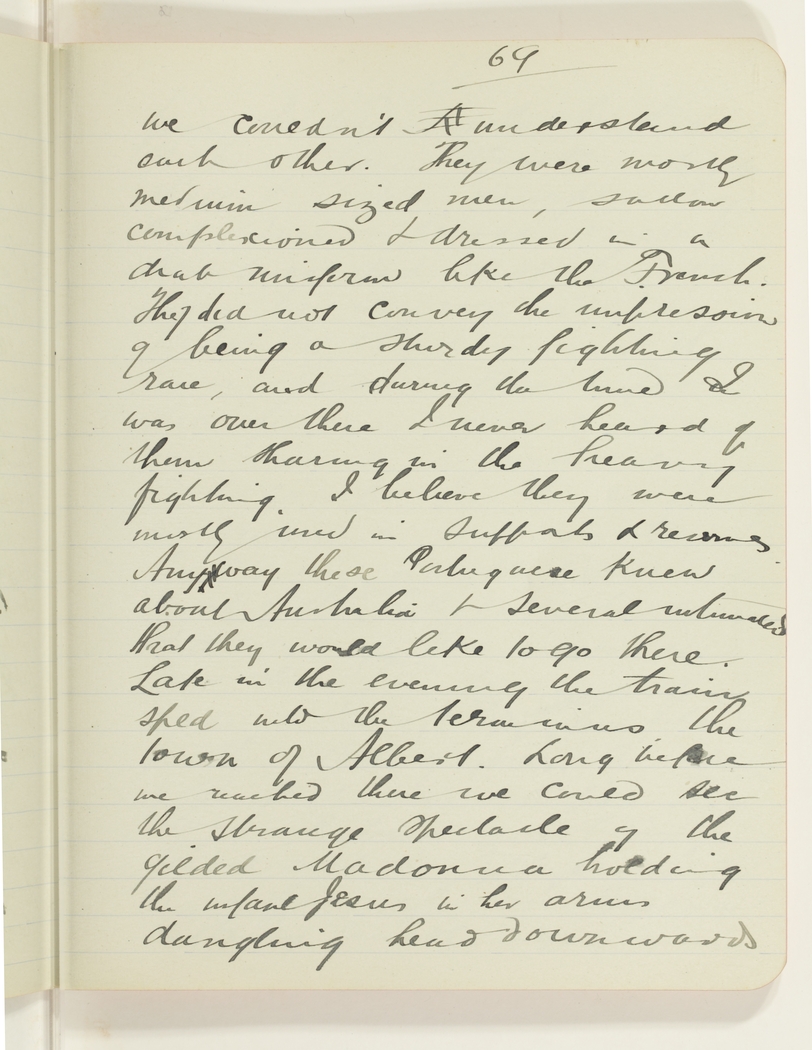 69
we couldn't understand
each other. They were mostly
medium sized men, sallow
complexioned & dressed in a
drab uniform like the French.
They did not convey the impression
of being a sturdy fighting
race, and during the time I
was over there I never heard of
them sharing in the heavy
fighting. I believe they were
mostly used in supports & reserves
Anyway these Portuguese knew
about Australia & several intimated
that they would like to go there.
Late in the evening the train
sped into the terminus the
town of Albert. Long before
we reached there we could see
the strange spectacle of the
gilded Madonna holding
the infant Jesus in her arms
dangling head downwards